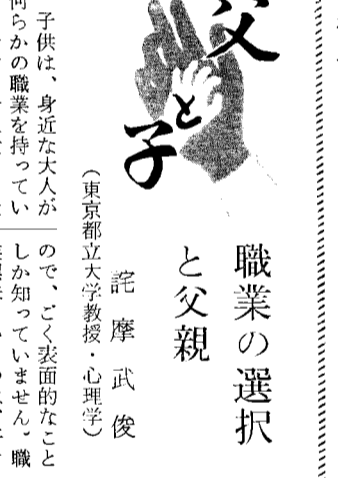 父と子
職業の選択
と父親
詫摩武俊
（東京都立大学教授・心理学）
子供は、身近な大人が
何らかの職業を持ってい
ので、ごく表面的なこと
しか知っていません。職